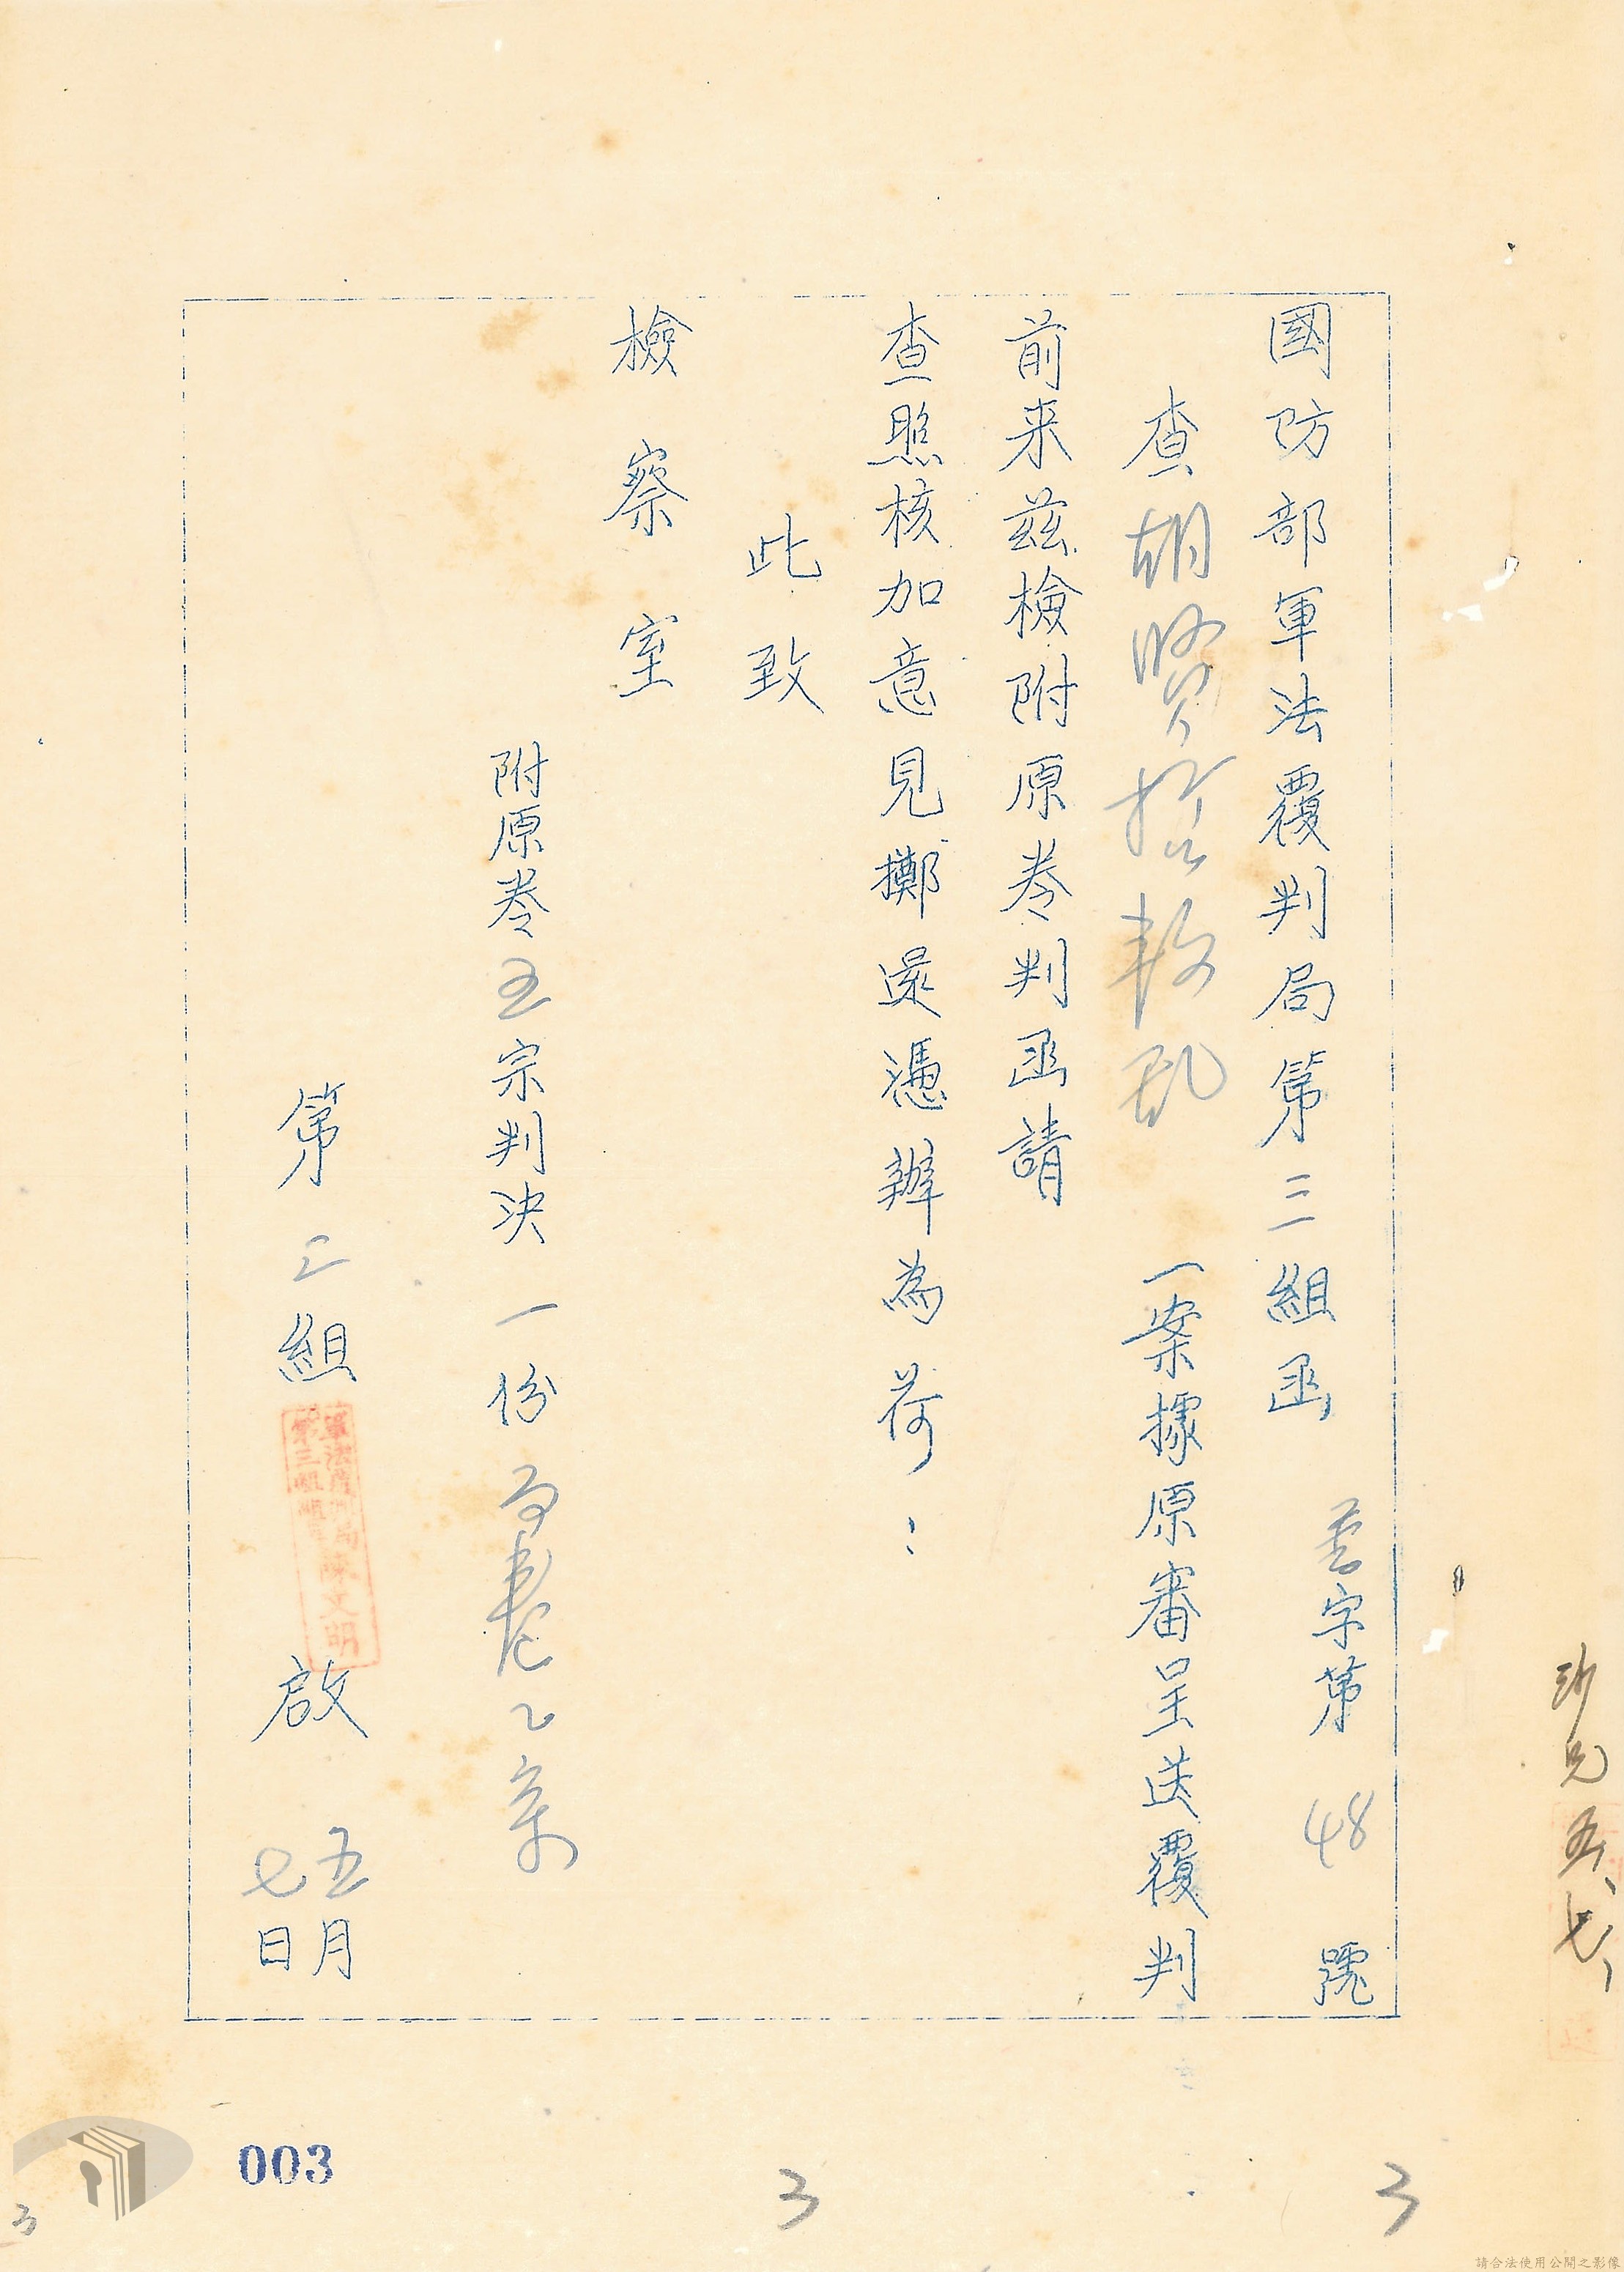 國防部軍法覆判局第三組函
字第 48 號
查胡賢 叛亂 一案據原審呈送覆判
前来兹檢附原卷判函請
查照核加意見擲還憑辦為荷：
此致
檢察室
附原卷五宗判决一份
第三組 啟 五月七日
軍法覆判局
第三組 陳文明
五、七、
003
3
3
3
請合法使用公開之影像